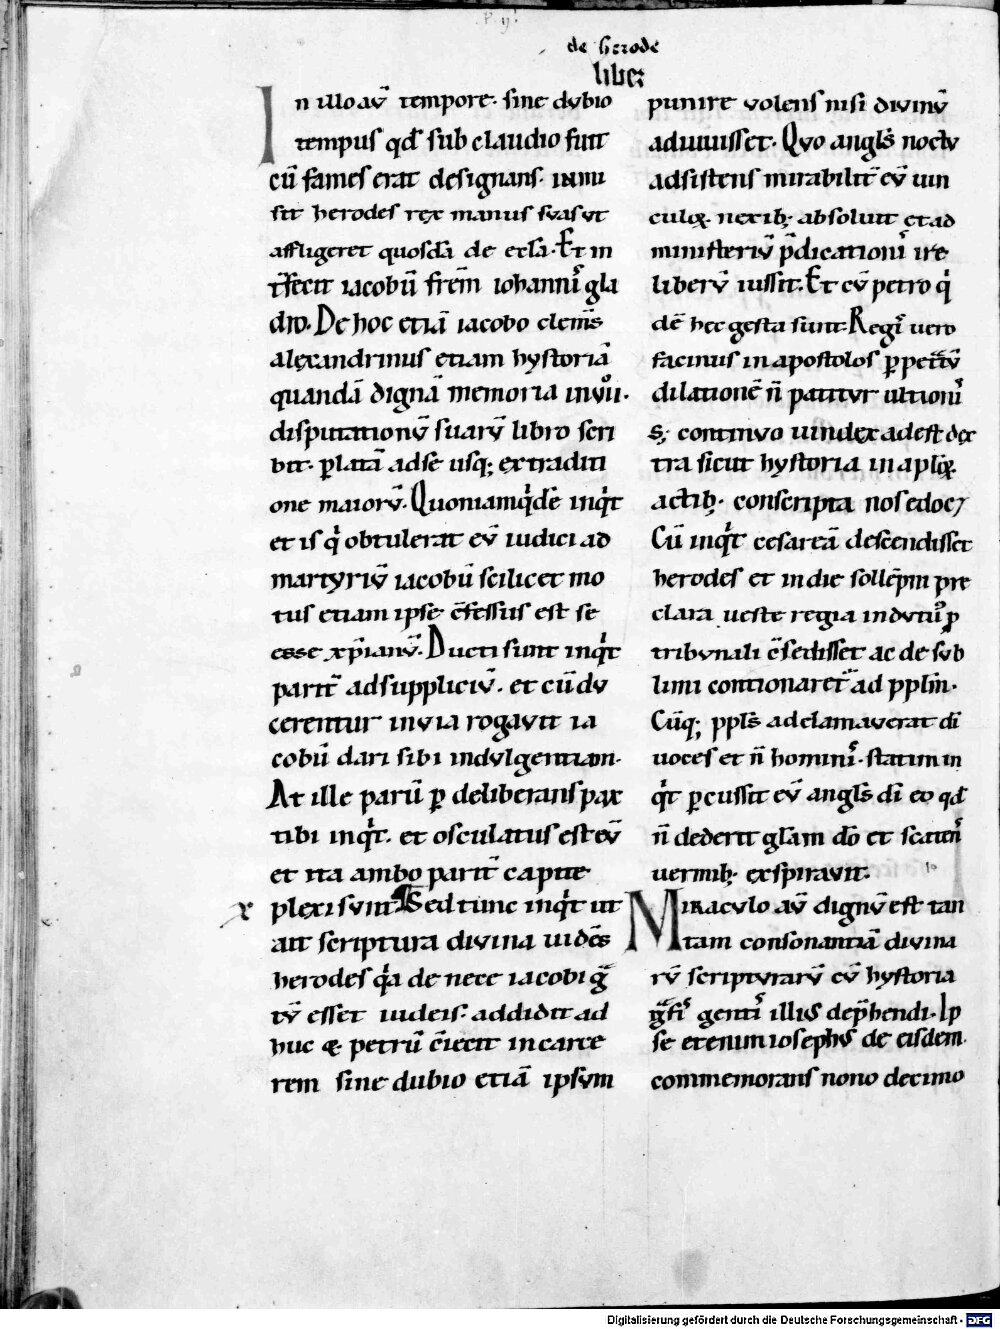 de herode
liber
In illo aū tempore· sine dubio
tempus qđ sub claudio fuit
cū fames erat designans· inmi
sit herodes rex manus suas ut
affligeret quosdā de eccl̄a· Et in
t̄fecit iacobū fr̄em iohannis gla
dio· De hoc etiā iacobo clem̄s
alexandrinus etiam hystoriā
quandā dignā memoria in
disputationū suarū libro scri
bit· p̱latā ad se usq; ex traditi
one maiorū· Quoniam qͥdē inqͥt
et is qͥ obtulerat eū iudici ad
martyriū iacobū scilicet mo
tus etiam ipse c̄fessus est se
esse xp̄ianū· Ducti sunt inqͥt
parit̄ ad suppliciū· et cū du
cerentur in via rogavit ia
cobū dari sibi indulgentiam·
At ille parū p̱ deliberans pax
tibi inqͥt· et osculatus est eū
et ita ambo parit̄ capite
x plexi sunt· Sed tunc inqͥt ut
ait scriptura divina uidēs
herodes qͥa de nece iacobi gͣ
tū esset iudeis· addidit ad
huc & petrū c̄iecit in carce
rem sine dubio etiā ipsum
punire volens nisi divinū
adiuuisset· Quo angl̄s noctu
adsistens mirabilit̄ eū uin
culoꝝ nexibꝫ absoluit et ad
ministeriū p̄dicationis ire
liberū iussit· Et cū petro qͥ
dē hec gesta sunt· Regis uero
facinus in apostolos p̱petͣtū
dilationē n̄ patitur ultionis
sꝫ continuo uindex adest dex
tra sicut hystoria in apl̄oꝝ
actibꝫ conscripta nos edoc̄
Cū inqͥt cesareā descendisset
herodes et in die sollēpni pre
clara ueste regia indutus p̱
tribunali c̄sedisset ac de sub
limi contionaret̄ ad ppl̄m·
Cūq; ppl̄s adclamaverat di
uoces et n̄ hominis· statim in
qͥt p̱cussit eū angl̄s dī eo qđ
n̄ dederit gl̄am dō et scatens
uermibꝫ exspiravit·
Miraculo aū dignū est tan
tam consonantiā divina
rū scripturarū cū hystoria
gͣfis gentis illius dep̄hendi· Ip
se etenim iosephus de eisdem
commemorans nono decimo
Digitalisierung gefördert durch die Deutsche Forschungsgemeinschaft - DFG